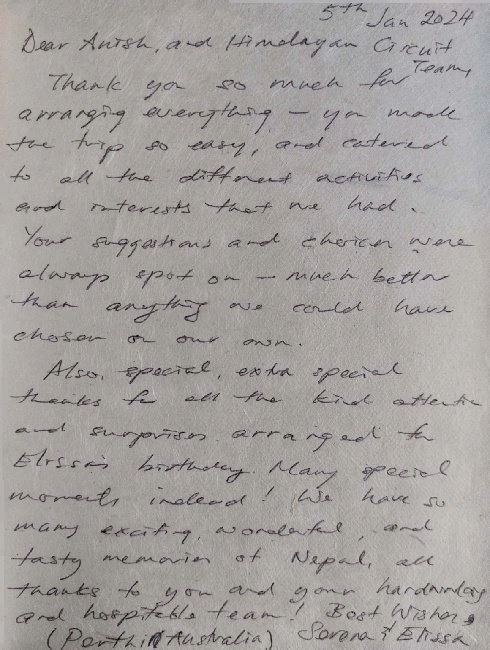 5th Jan 2024
Dear Anish, and Himalayan Circuit
Team,
Thank you so much for
arranging everything - you made
the trip so easy, and catered
to all the different activities
and interests that we had.
Your suggestions and choices were
always spot on - much better
than anything we could have
chosen on our own.
Also, special, extra special
thanks for all the kind attention
and surprises arranged for
Elissa's birthday. Many special
moments indeed! We have so
many exciting, wonderful, and
tasty memories of Nepal, all
thanks to you and your hardworking
and hospitable team! Best Wishes
(Perth, Australia) & Elissa